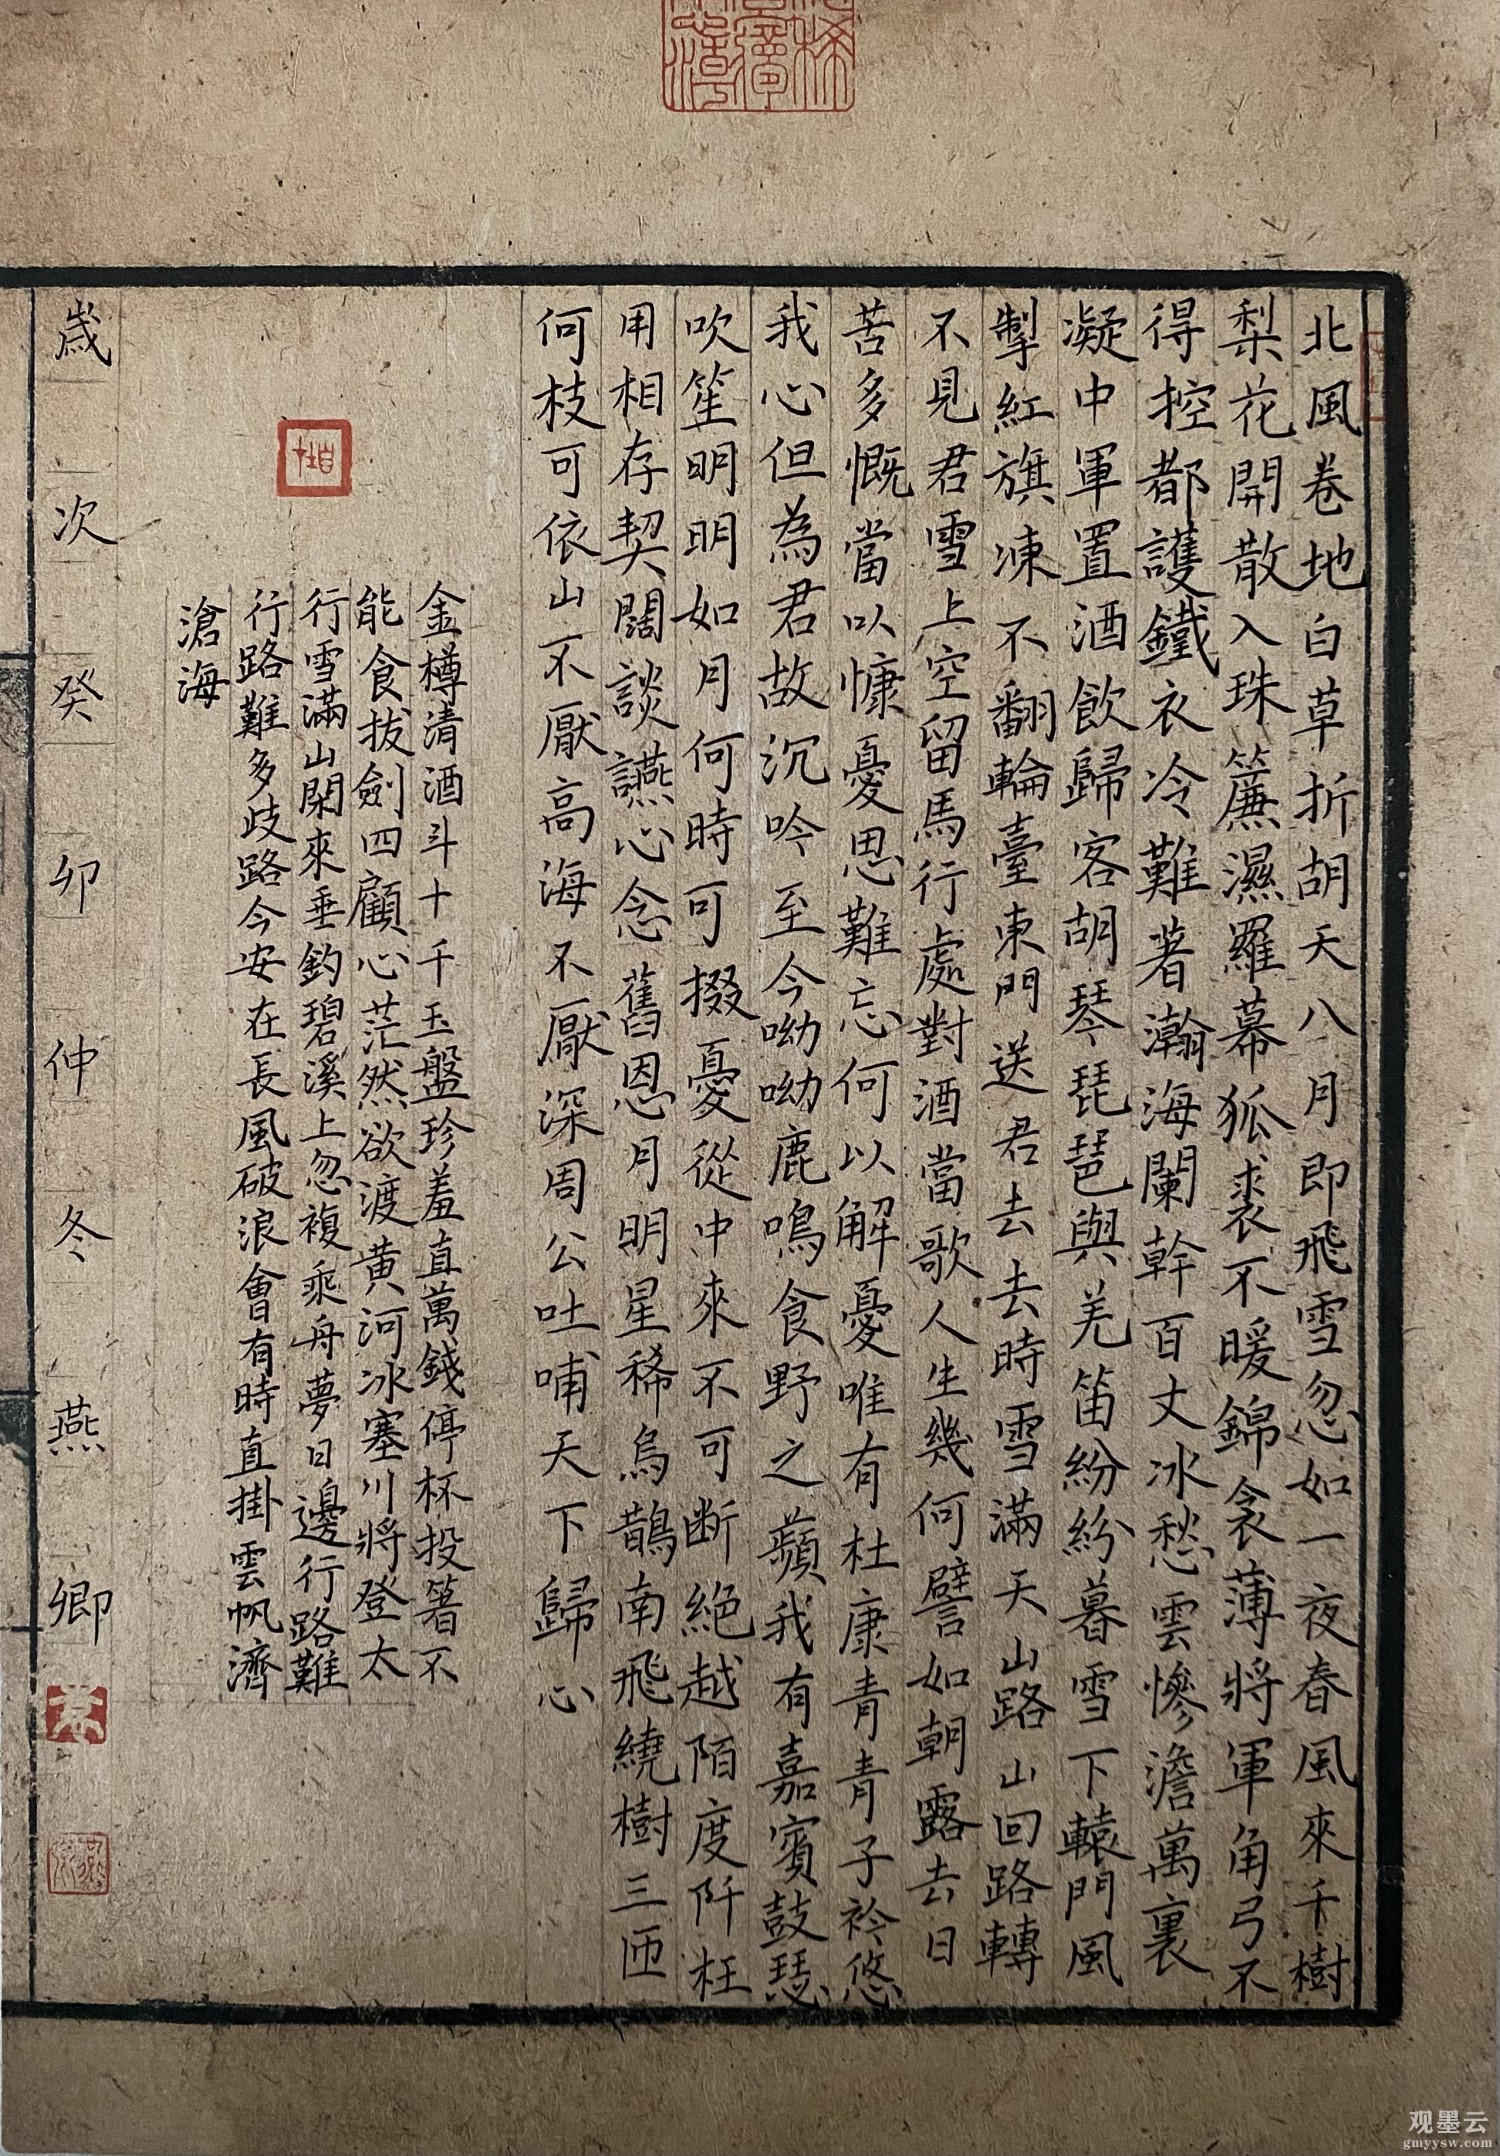 北風卷地白草折胡天八月即飛雪忽如一夜春風來千樹
梨花開散入珠簾濕羅幕狐裘不暖錦衾薄將軍角弓不
得控都護鐵衣冷難著瀚海闌幹百丈冰愁雲慘澹萬裏
凝中軍置酒飲歸客胡琴琵琶與羌笛紛紛暮雪下轅門風
掣紅旗凍不翻輪臺東門送君去去時雪滿天山路山回路轉
不見君雪上空留馬行處對酒當歌人生幾何譬如朝露去日
苦多慨當以慷憂思難忘何以解憂唯有杜康青青子衿悠
我心但為君故沉吟至今呦呦鹿鳴食野之蘋我有嘉賓鼓瑟
吹笙明明如月何時可掇憂從中來不可断絕越陌度阡枉
用相存契闊談讌心念舊恩月明星稀烏鵲南飛繞樹三匝
何枝可依山不厭高海不厭深周公吐哺天下歸心
金樽清酒斗十千玉盤珍羞直萬錢停杯投箸不
能食拔劍四顧心茫然欲渡黄河冰塞川將登太
行雪滿山閑來垂釣碧溪上忽複乘舟夢日邊行路難
行路難多歧路今安在長風破浪會有時直掛雲帆濟
滄海
歲次癸卯仲冬燕卿
观墨云
gmyysw.com